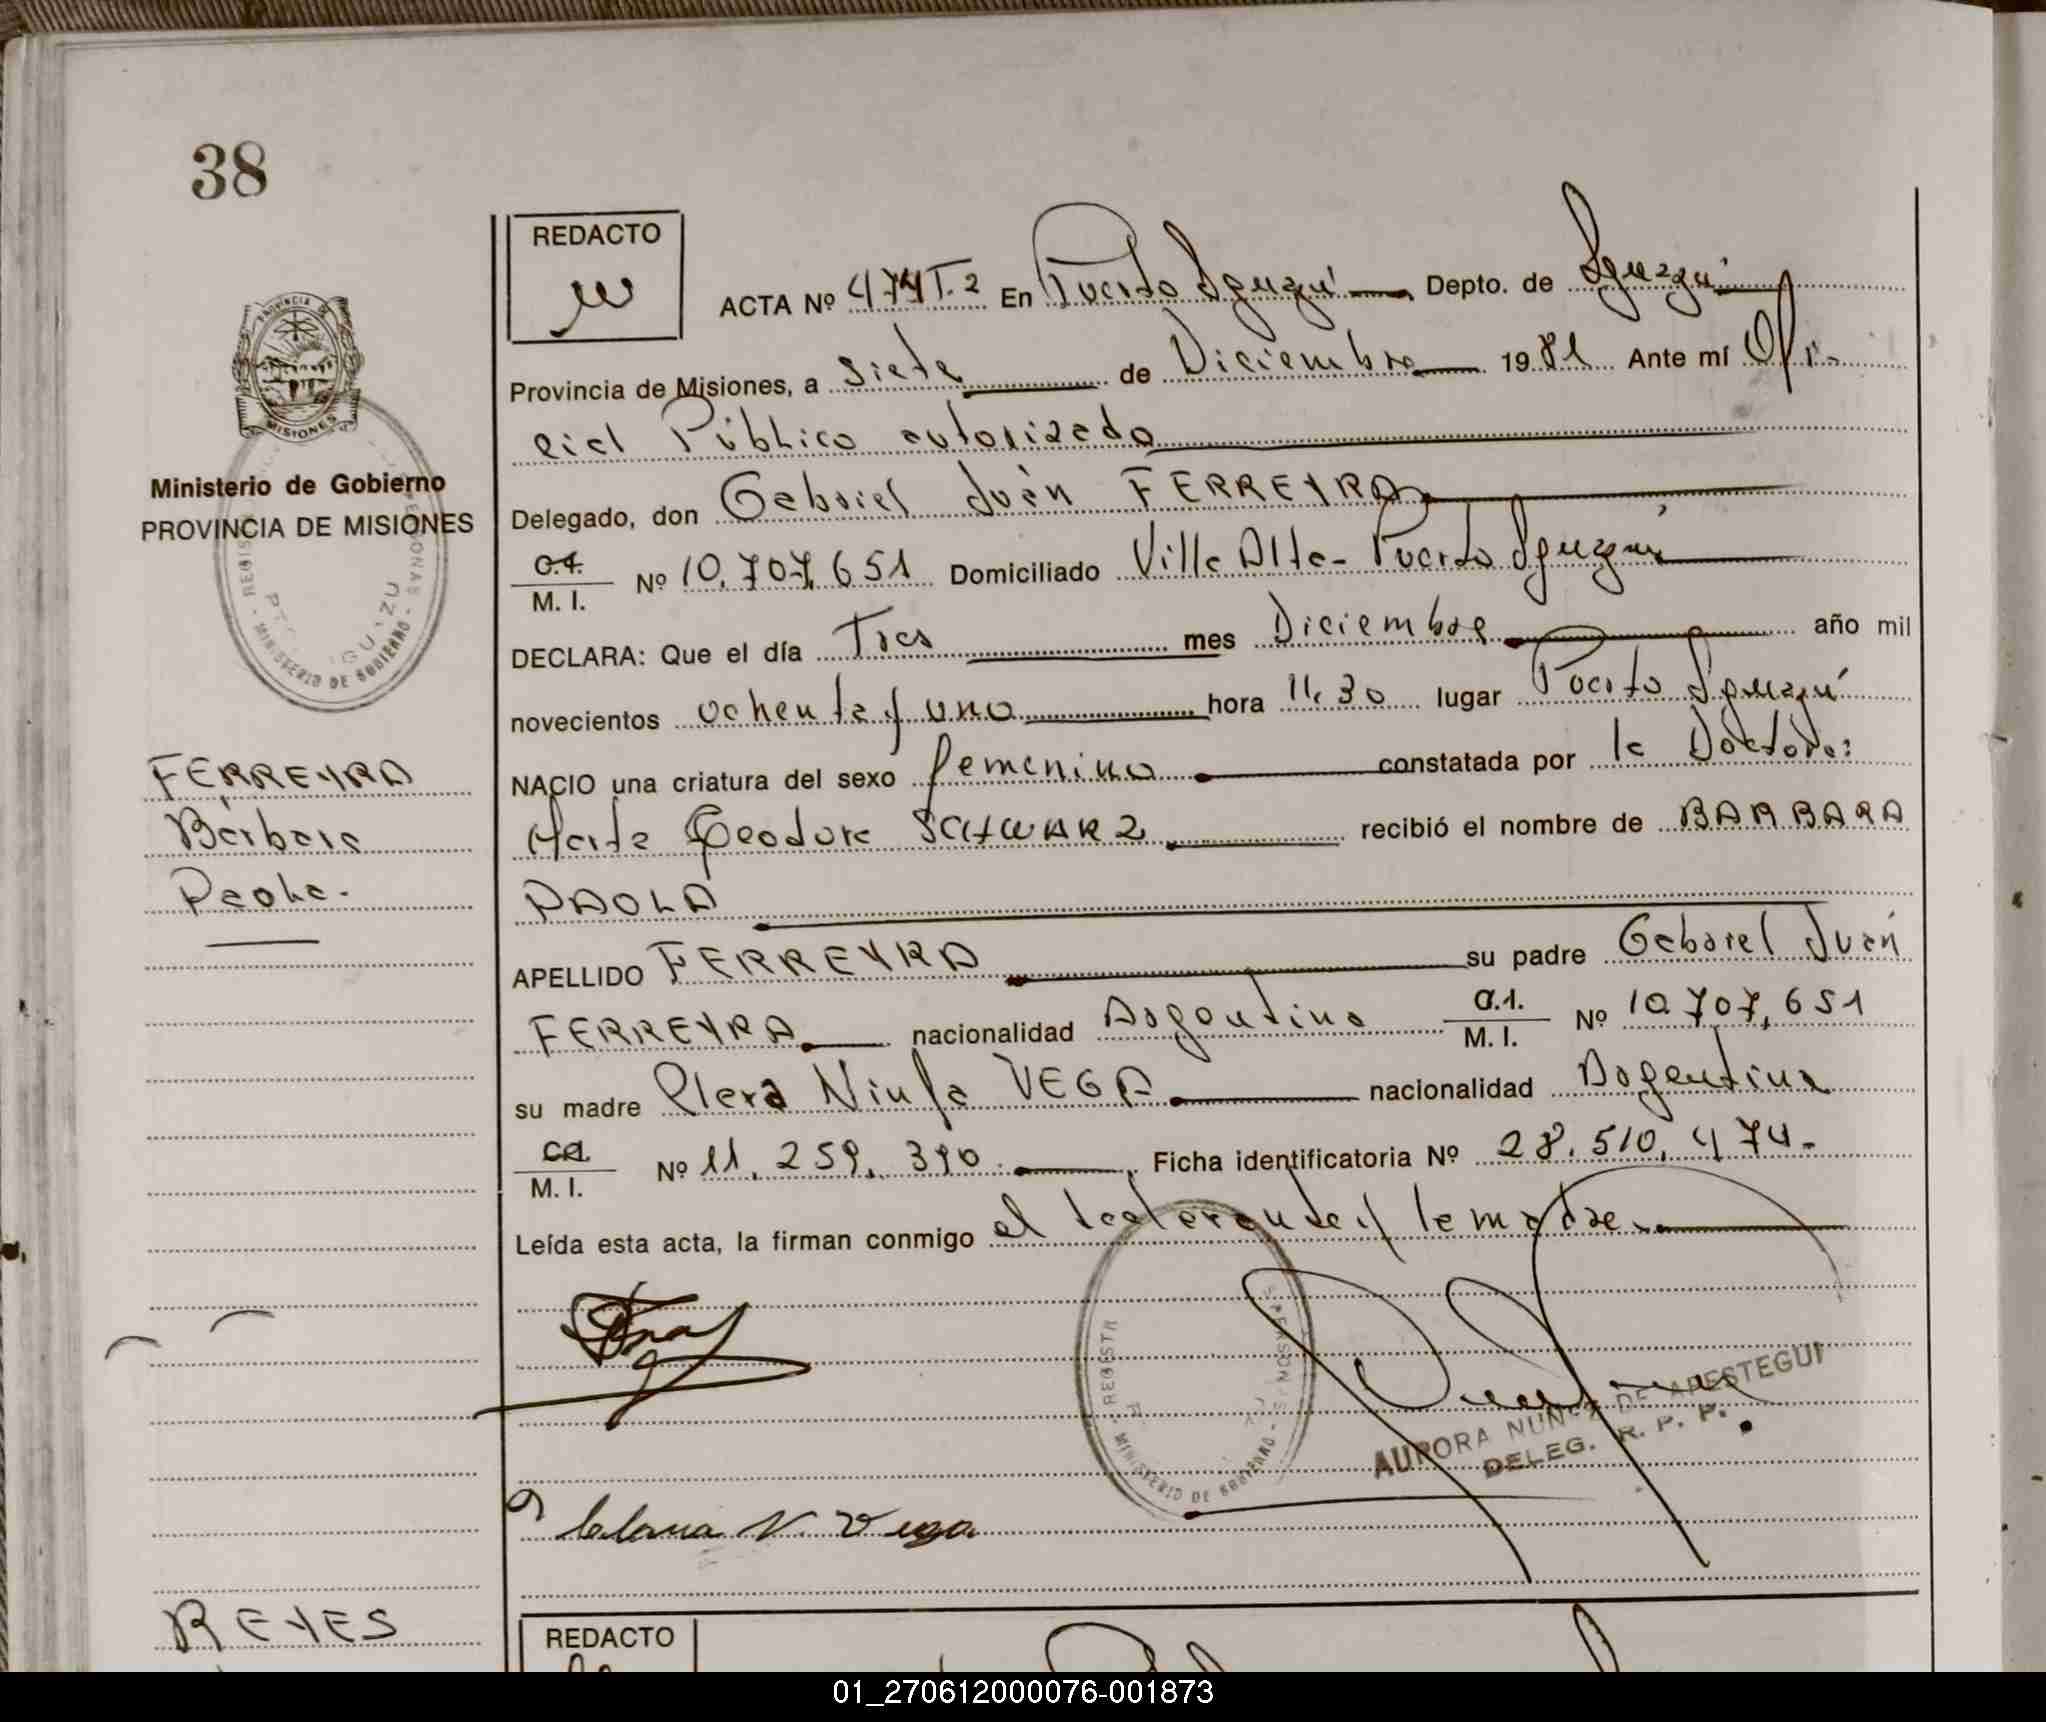 38
REDACTO
ACTA Nº 474 T. 2 En Puerto Iguazú Depto. de Iguazú
Provincia de Misiones, a siete de Diciembre 1981 Ante mí Ofi-
cial Público autorizado
Ministerio de Gobierno
PROVINCIA DE MISIONES
Delegado, don Gabriel Juán FERREYRA
C.I.
M. I. Nº 10.707.651 Domiciliado Villa Alta - Puerto Iguazú
DECLARA: Que el día Tres mes Diciembre año mil
novecientos ochenta y uno hora 11,30 lugar Puerto Iguazú
FERREYRA
Bárbara
Paola.
NACIO una criatura del sexo femenino constatada por la Doctora:
Marta Teodora SCHWARZ recibió el nombre de BARBARA
PAOLA
APELLIDO FERREYRA su padre Gabriel Juán
FERREYRA nacionalidad Argentina C.I.
M. I. Nº 10.707,651
su madre Clara Ninfa VEGA nacionalidad Argentina
C.I.
M. I. Nº 11.259.390. Ficha identificatoria Nº 28.510.474-
Leída esta acta, la firman conmigo el declarante y la madre.
REGISTR
MINISTERIO DE GOBIERNO
AURORA NUÑEZ DE APESTEGUI
DELEG. R. P. P.
Clara N. Vega
REYES
REDACTO
01_270612000076-001873